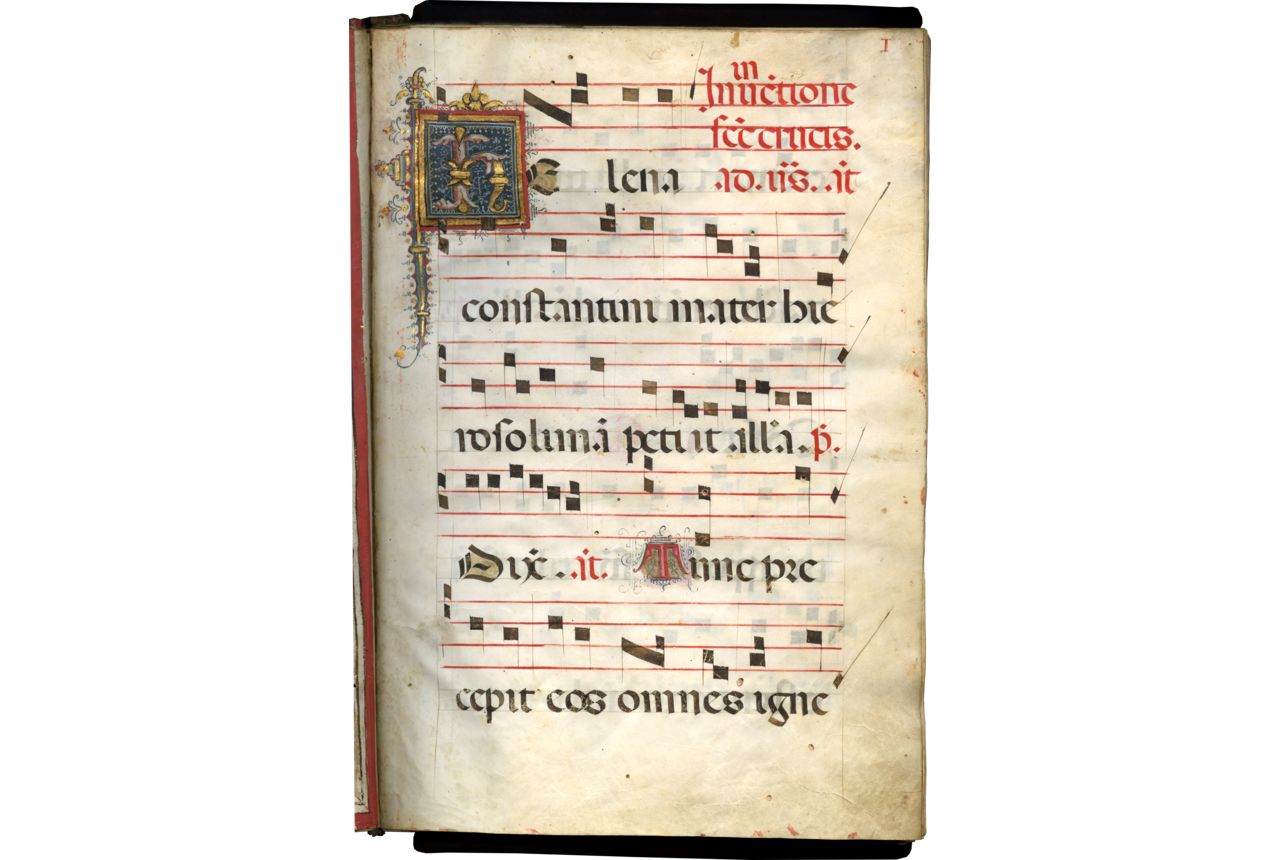 I
In inuētione
scē crucis.
HElena .ad. uṝs. añ
constantini mater hie
rosolimā petiit allā. p̄.
Dix̄. .añ. Tunc pre
cepit eos omnes igne